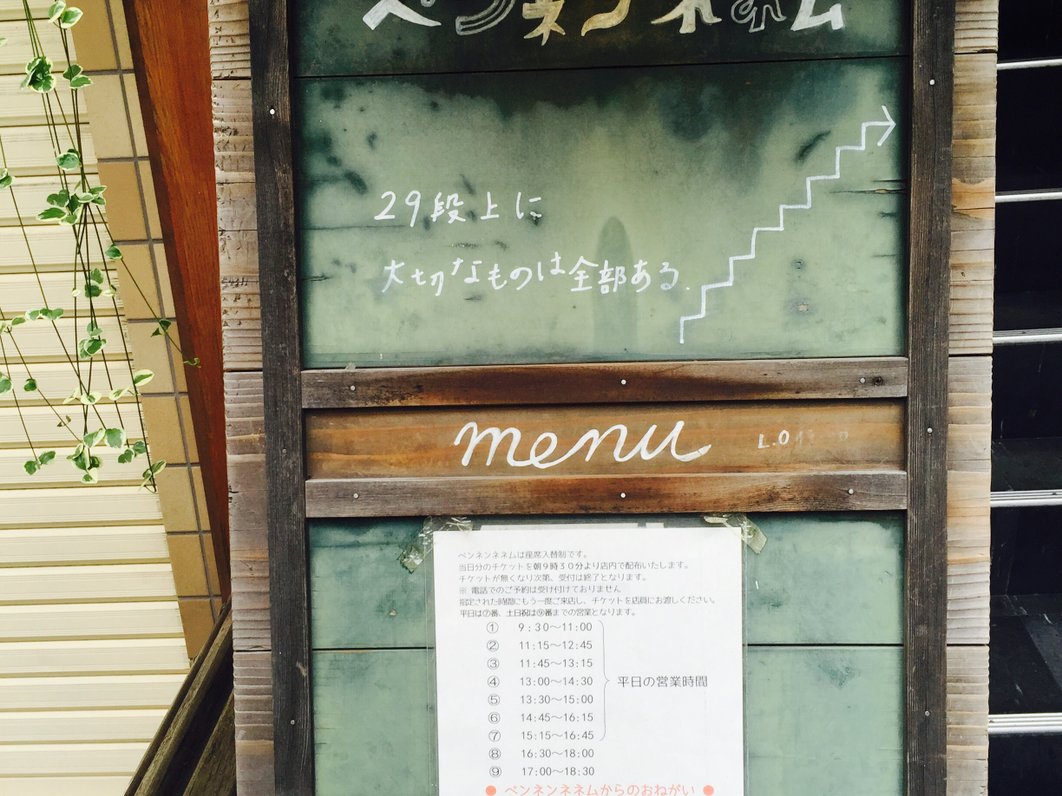 ペンネンネネム
29段上に
大切なものは全部ある.
menu
L.O
ペンネンネネムは座席入替制です。
当日分のチケットを朝9時30分より店内で配布いたします。
チケットが無くなり次第、受付は終了となります。
※ 電話でのご予約は受け付けておりません
指定された時間にもう一度ご来店し、チケットを店員にお渡しください。
平日は⑦番、土日祝は⑨番までの営業となります。
① 9:30～11:00
② 11:15～12:45
③ 11:45～13:15
④ 13:00～14:30 平日の営業時間
⑤ 13:30～15:00
⑥ 14:45～16:15
⑦ 15:15～16:45
⑧ 16:30～18:00
⑨ 17:00～18:30
● ペンネンネネムからのおねがい ●